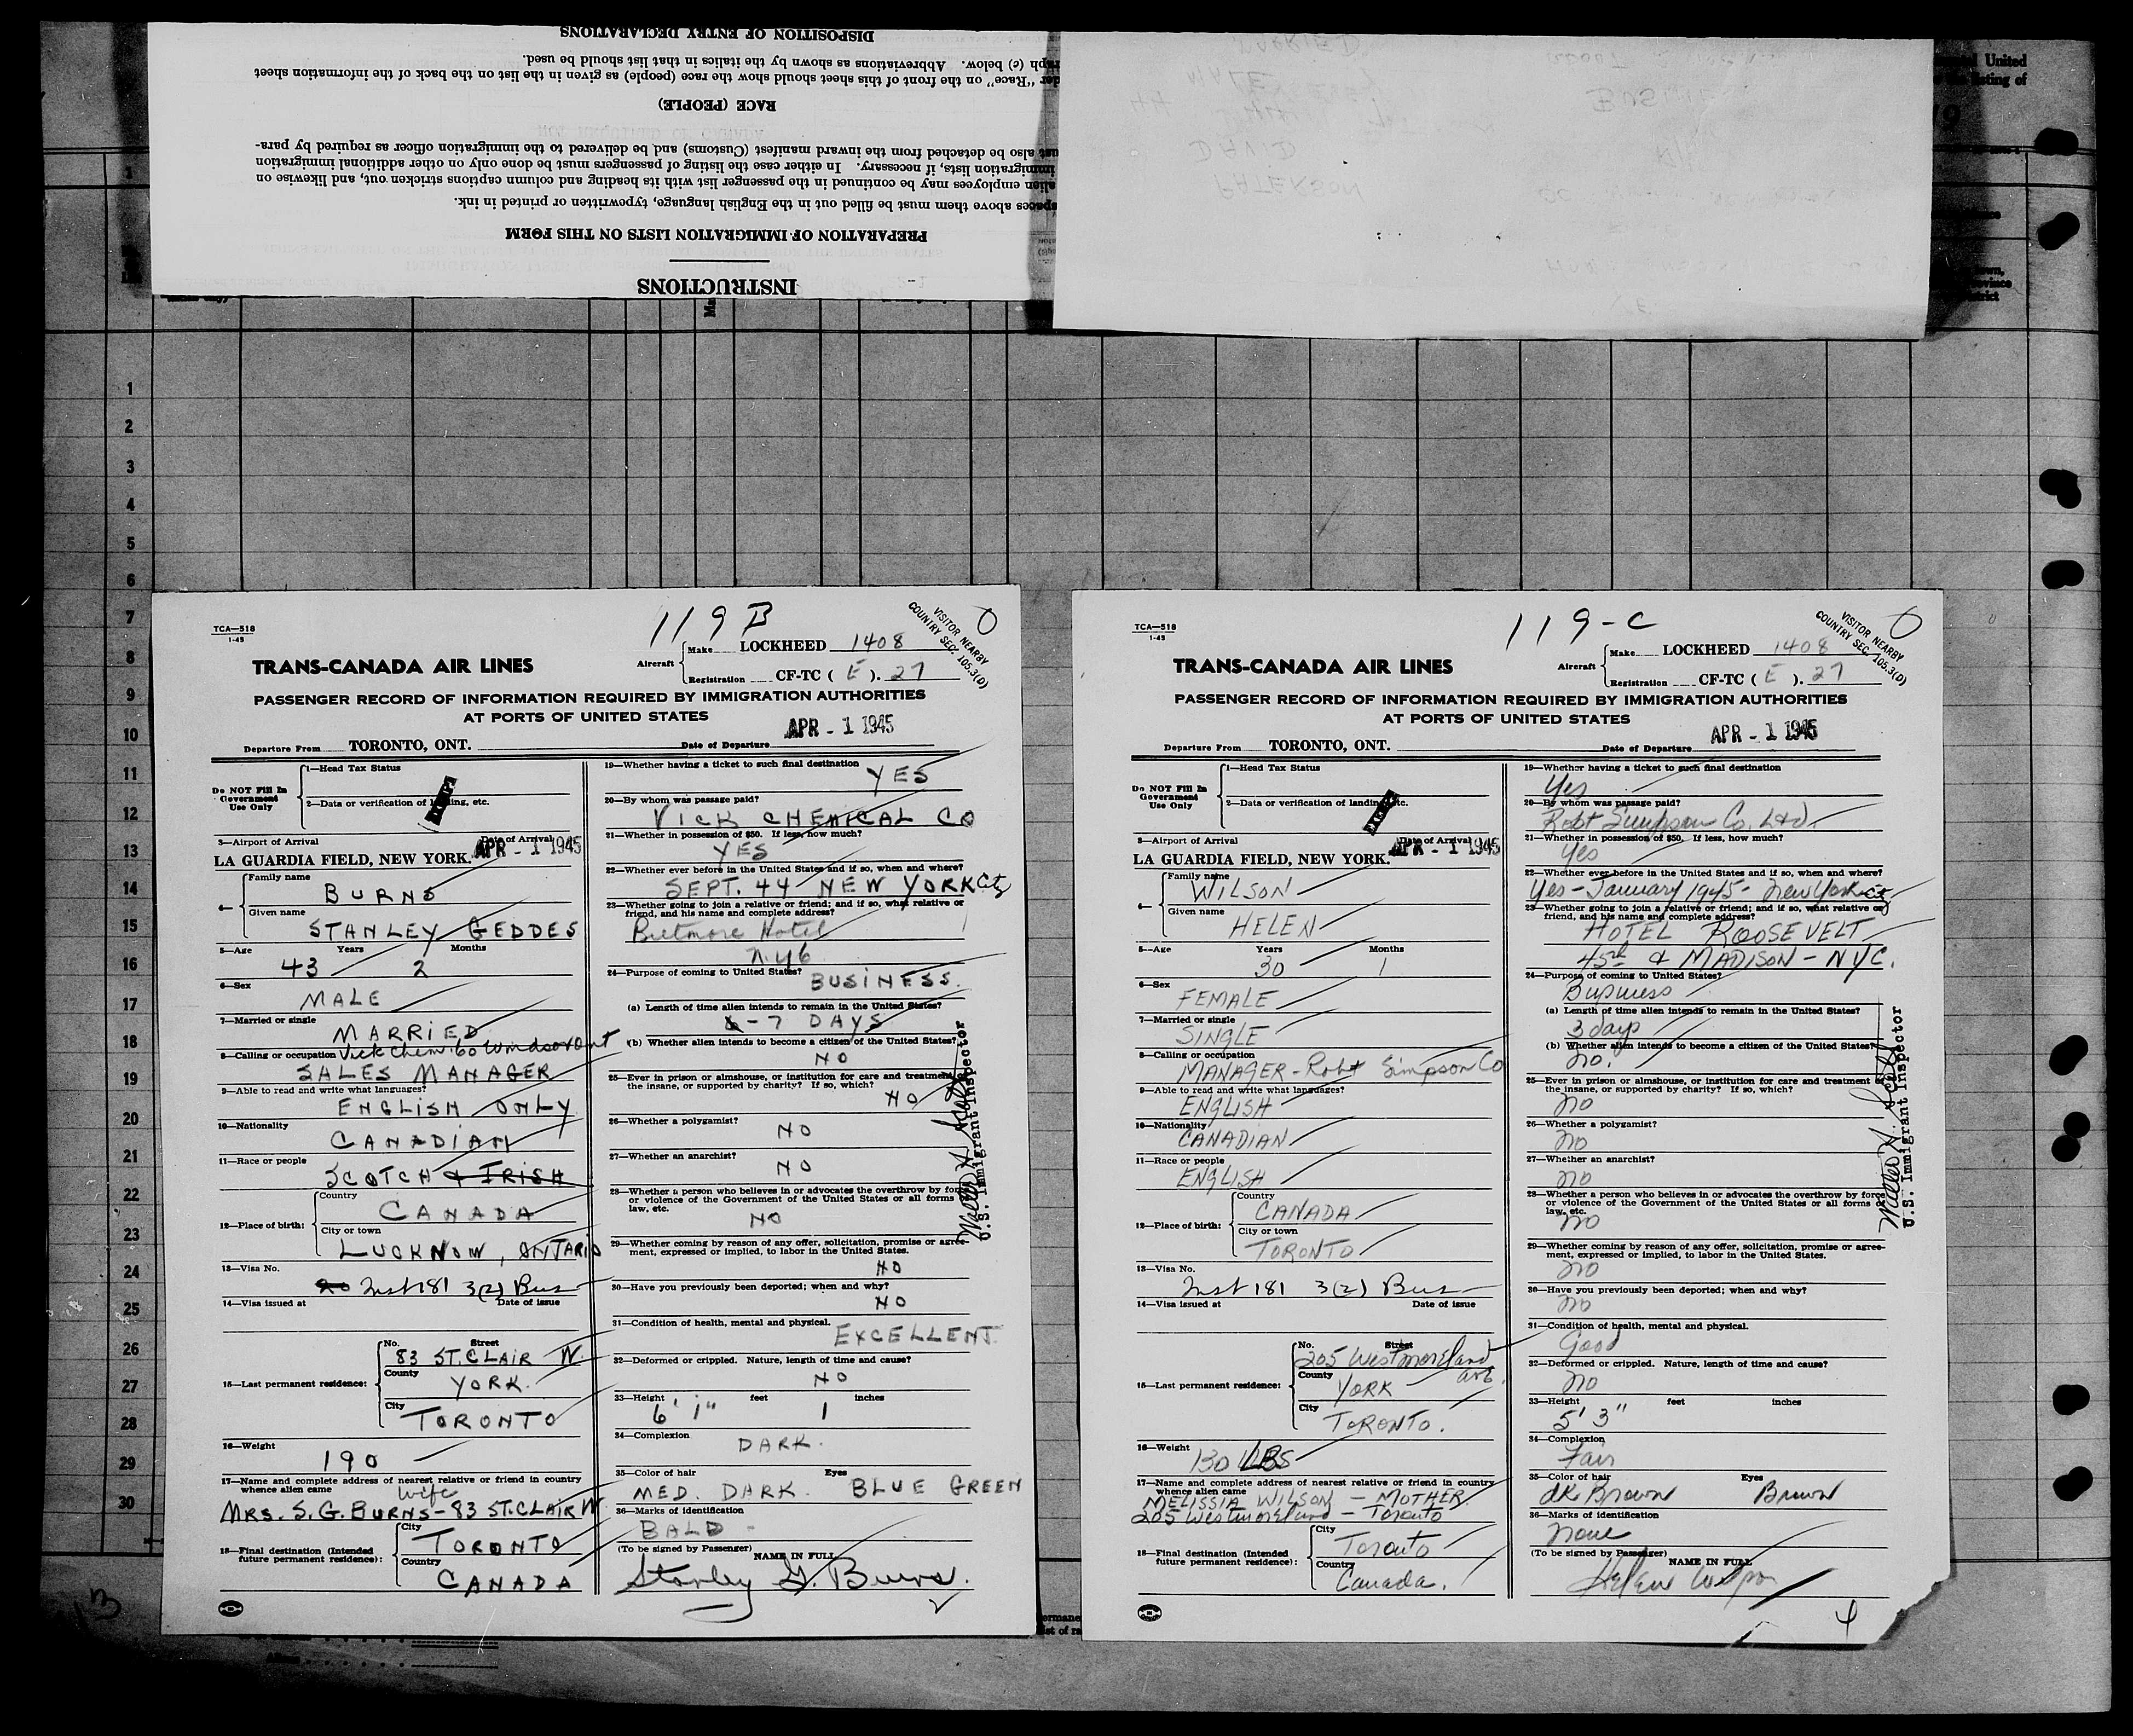 INSTRUCTIONS
PREPARATION OF IMMIGRATION LISTS ON THIS FORM
spaces above them must be filled out in the English language, typewritten or printed in ink.
alien employees may be continued in the passenger list with its heading and column captions stricken out, and likewise on
immigration lists, if necessary. In either case the listing of passengers must be done only on other additional immigration
ust also be detached from the inward manifest (Customs) and be delivered to the immigration officer as required by para-
RACE (PEOPLE)
der "Race" on the front of this sheet should show the race (people) as given in the list on the back of the information sheet
raph (c) below. Abbreviations as shown by the italics in that list should be used.
DISPOSITION OF ENTRY DECLARATIONS
United
sting of
1
2
3
4
5
6
7
8
9
10
11
12
13
14
15
16
17
18
19
20
21
22
23
24
25
26
27
28
29
30
TCA—518
1-45
119 B
0
VISITOR NEARBY
COUNTRY SEC. 105.3(D)
TRANS-CANADA AIR LINES
Aircraft
Make LOCKHEED 1408
Registration CF-TC ( E ). 27
PASSENGER RECORD OF INFORMATION REQUIRED BY IMMIGRATION AUTHORITIES
AT PORTS OF UNITED STATES
Departure From TORONTO, ONT. Date of Departure APR - 1 1945
Do NOT Fill In
Government
Use Only
1—Head Tax Status
2—Data or verification of landing, etc.
3—Airport of Arrival Date of Arrival
LA GUARDIA FIELD, NEW YORK. APR - 1 1945
4— Family name BURNS
Given name STANLEY GEDDES
5—Age Years Months
43 2
6—Sex
MALE
7—Married or single
MARRIED
8—Calling or occupation Vick Chem. Co Windsor Ont
SALES MANAGER
9—Able to read and write what languages?
ENGLISH ONLY
10—Nationality
CANADIAN
11—Race or people
SCOTCH & IRISH
12—Place of birth:
Country CANADA
City or town LUCKNOW, ONTARIO
13—Visa No.
Inst 181 3(2) Bus
14—Visa issued at Date of issue
15—Last permanent residence:
No. Street
83 ST. CLAIR W.
County
YORK.
City
TORONTO
16—Weight
190
17—Name and complete address of nearest relative or friend in country
whence alien came Wife
MRS. S. G. BURNS - 83 ST. CLAIR W.
18—Final destination (Intended
future permanent residence):
City TORONTO
Country CANADA
19—Whether having a ticket to such final destination
YES
20—By whom was passage paid?
VICK CHEMICAL CO
21—Whether in possession of $50. If less, how much?
YES
22—Whether ever before in the United States and if so, when and where?
SEPT. 44 - NEW YORK City
23—Whether going to join a relative or friend; and if so, what relative or
friend, and his name and complete address?
Biltmore Hotel
N.Y.C
24—Purpose of coming to United States?
BUSINESS.
(a) Length of time alien intends to remain in the United States?
6-7 DAYS
(b) Whether alien intends to become a citizen of the United States?
NO
25—Ever in prison or almshouse, or institution for care and treatment
the insane, or supported by charity? If so, which?
NO
26—Whether a polygamist?
NO
27—Whether an anarchist?
NO
28—Whether a person who believes in or advocates the overthrow by force
or violence of the Government of the United States or all forms
law, etc.
NO
29—Whether coming by reason of any offer, solicitation, promise or agree-
ment, expressed or implied, to labor in the United States.
NO
30—Have you previously been deported; when and why?
NO
31—Condition of health, mental and physical.
EXCELLENT
32—Deformed or crippled. Nature, length of time and cause?
NO
33—Height feet inches
6' 1" 1
34—Complexion
DARK.
35—Color of hair Eyes
MED. DARK. BLUE GREEN
36—Marks of identification
BALD -
(To be signed by Passenger) NAME IN FULL
Stanley G. Burns.
U.S. Immigrant Inspector
TCA—518
1-45
119-C
0
VISITOR NEARBY
COUNTRY SEC. 105.3(D)
TRANS-CANADA AIR LINES
Aircraft
Make LOCKHEED 1408
Registration CF-TC ( E ). 27
PASSENGER RECORD OF INFORMATION REQUIRED BY IMMIGRATION AUTHORITIES
AT PORTS OF UNITED STATES
Departure From TORONTO, ONT. Date of Departure APR - 1 1945
Do NOT Fill In
Government
Use Only
1—Head Tax Status
2—Data or verification of landing, etc.
3—Airport of Arrival Date of Arrival
LA GUARDIA FIELD, NEW YORK. APR - 1 1945
4— Family name WILSON
Given name HELEN
5—Age Years Months
30 1
6—Sex
FEMALE
7—Married or single
SINGLE
8—Calling or occupation
MANAGER - Robt Simpson Co
9—Able to read and write what languages?
ENGLISH
10—Nationality
CANADIAN
11—Race or people
ENGLISH
12—Place of birth:
Country CANADA
City or town TORONTO
13—Visa No.
Inst 181 3(2) Bus
14—Visa issued at Date of issue
15—Last permanent residence:
No. Street
205 Westmoreland Ave.
County
YORK
City
TORONTO.
16—Weight
130 LBS
17—Name and complete address of nearest relative or friend in country
whence alien came
MELISSIA WILSON - MOTHER
205 Westmoreland - Toronto
18—Final destination (Intended
future permanent residence):
City Toronto
Country Canada.
19—Whether having a ticket to such final destination
Yes
20—By whom was passage paid?
Robt Simpson Co. Ltd.
21—Whether in possession of $50. If less, how much?
Yes
22—Whether ever before in the United States and if so, when and where?
Yes - January 1945 - New York City
23—Whether going to join a relative or friend; and if so, what relative or
friend, and his name and complete address?
HOTEL ROOSEVELT
45th & MADISON - NYC.
24—Purpose of coming to United States?
Business
(a) Length of time alien intends to remain in the United States?
3 days
(b) Whether alien intends to become a citizen of the United States?
no.
25—Ever in prison or almshouse, or institution for care and treatment
the insane, or supported by charity? If so, which?
no
26—Whether a polygamist?
no
27—Whether an anarchist?
no
28—Whether a person who believes in or advocates the overthrow by force
or violence of the Government of the United States or all forms
law, etc.
no
29—Whether coming by reason of any offer, solicitation, promise or agree-
ment, expressed or implied, to labor in the United States.
no
30—Have you previously been deported; when and why?
no
31—Condition of health, mental and physical.
Good
32—Deformed or crippled. Nature, length of time and cause?
no
33—Height feet inches
5' 3"
34—Complexion
Fair
35—Color of hair Eyes
dk Brown Brown
36—Marks of identification
none
(To be signed by Passenger) NAME IN FULL
Helen Wilson
U.S. Immigrant Inspector
4